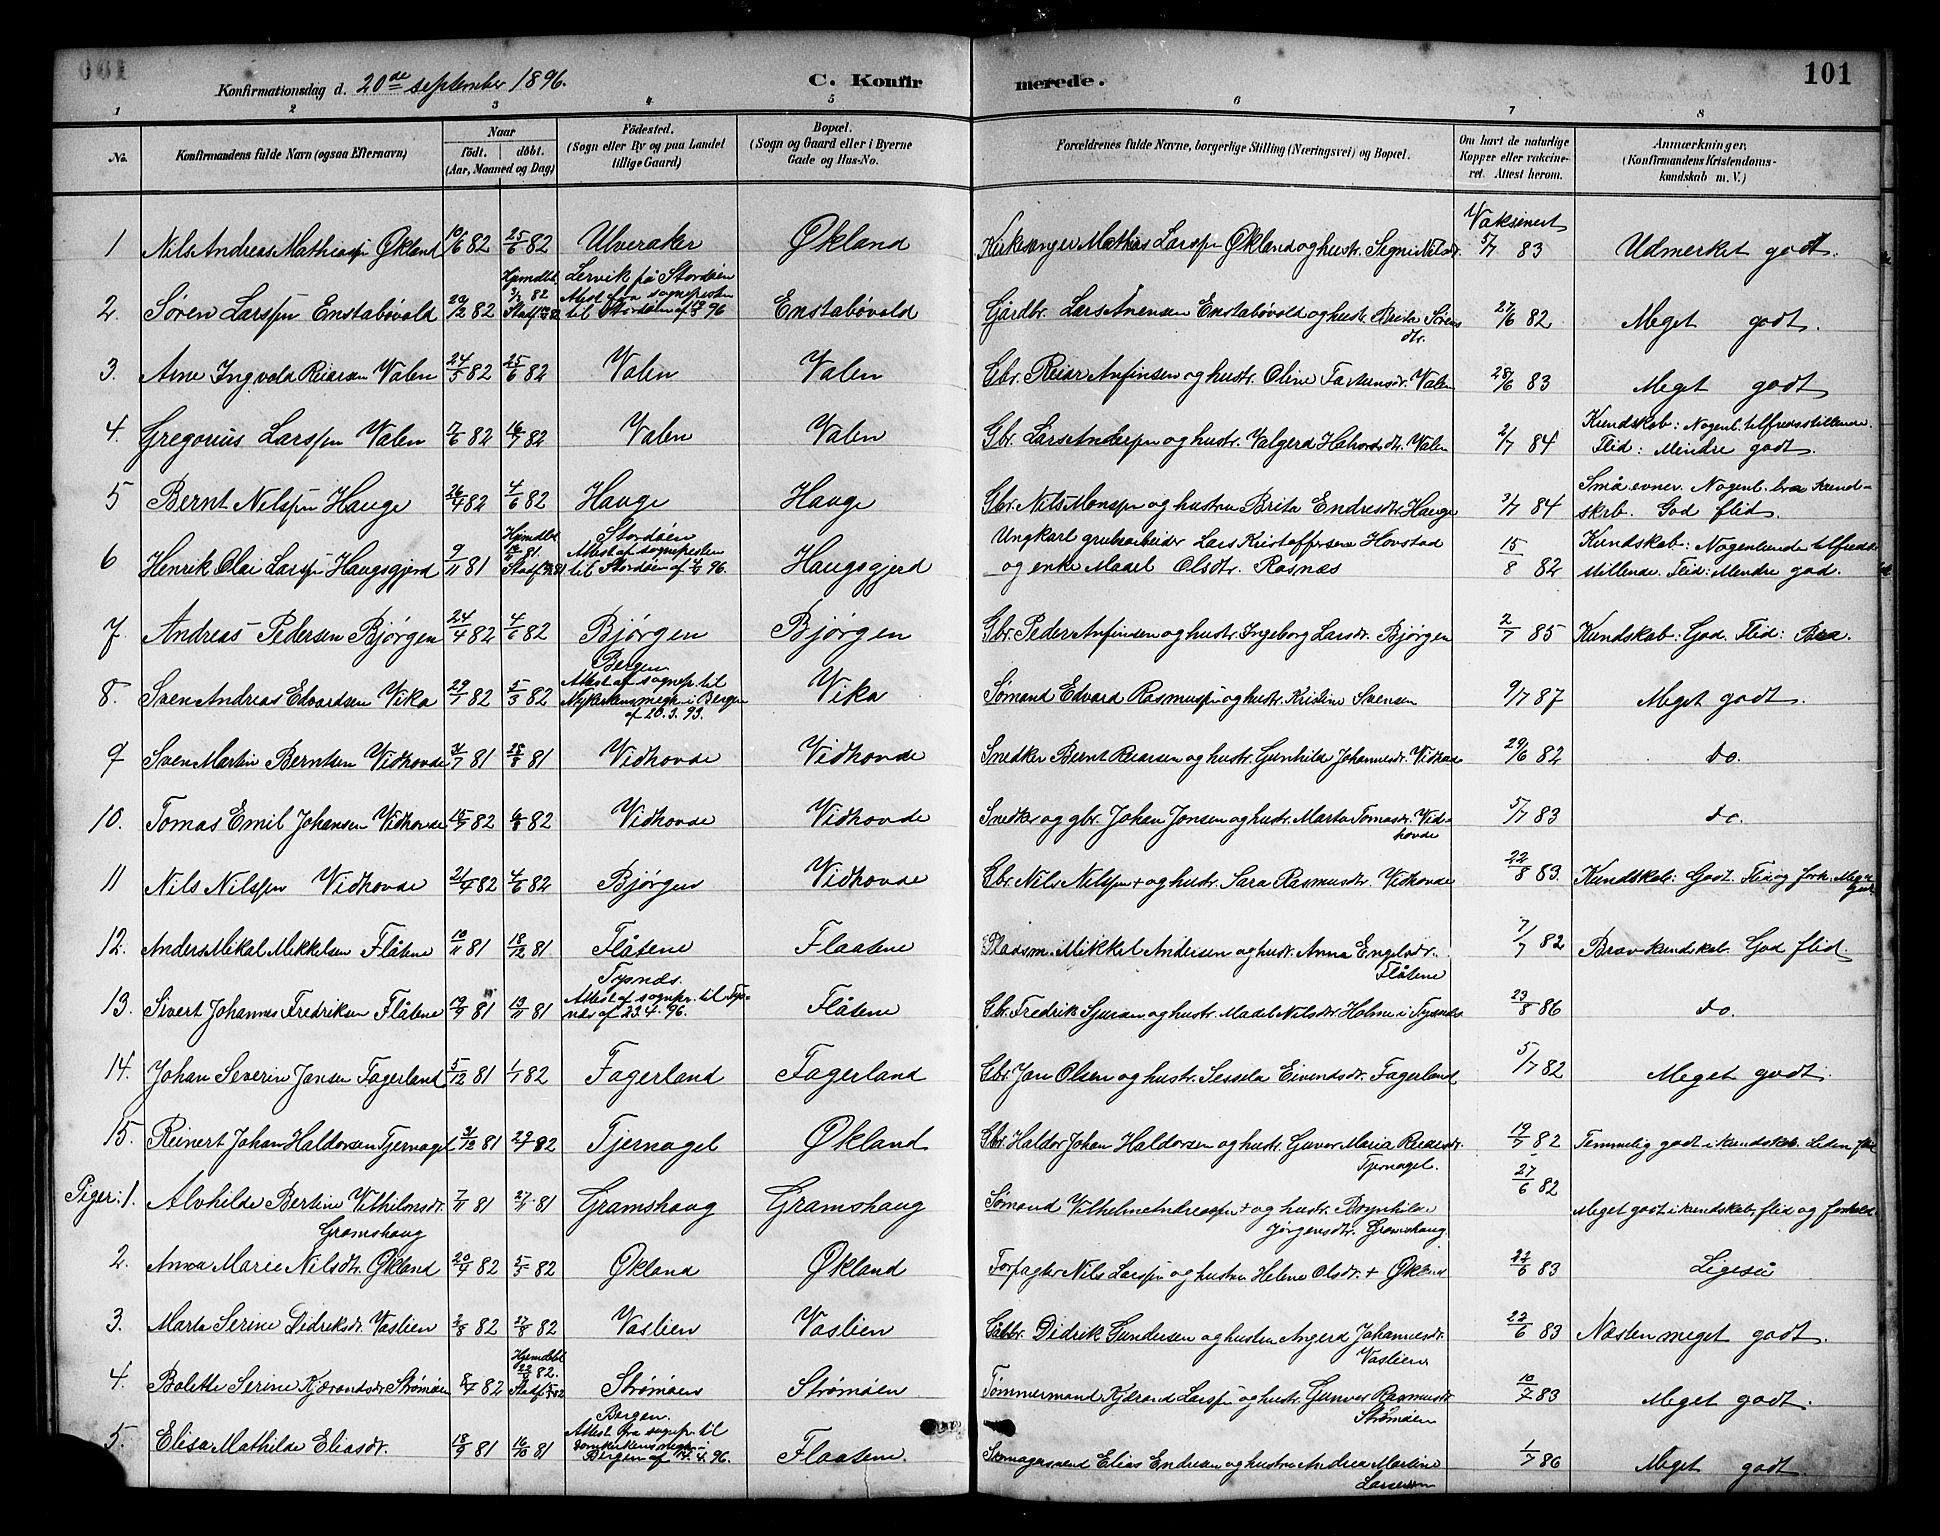 Konfirmationsdag d. 20de september 1896.
C. Konfir
merede.
101
1 2 3 4 5 6 7 8
No.
Konfirmandens fulde Navn (ogsaa Efternavn)
Naar
födt. döbt.
(Aar, Maaned og Dag)
Födested.
(Sogn eller By og paa Landet
tillige Gaard)
Bopæl.
(Sogn og Gaard eller i Byerne
Gade og Hus-No.
Forældrenes fulde Navne, borgerlige Stilling (Næringsvei) og Bopæl.
Om havt de naturlige
Kopper eller vakcine-
ret. Attest herom.
Anmærkninger.
(Konfirmandens Kristendoms-
kundskab m. V.)
Vaksinert
1 Nils Andreas Mathiassen Økland 10/6 82 25/6 82 Ulveraker Økland Kirksanger Mathias Larssen Økland og hustr. Signi Nilsdr. 5/7 83 Udmerket godt.
2. Søren Larssen Enstabøvold 29/12 82 Hjemdbt. 82 Lervik på Stordøen Attest fra sognepresten til Stordøen af 96 Enstabøvold Gårdbr. Lars Arensen Enstabøvold og hustr. Brita Sørens dtr. 27/6 82 Meget godt.
3. Arne Ingvald Reiersen Valen 24/5 82 25/6 82 Valen Valen Gbr. Reier Anfinsen og hustr. Oline Valen 28/6 83 Meget godt
4. Gregorius Larssen Valen 7/6 82 16/7 82 Valen Valen Gbr. Lars Anderssen og hustr. Valgerd Valen 2/7 84 Kundskab: Nogenl. tilfredsstillende. Flid: Mindre godt.
5 Bernt Nilssen Hauge 26/4 82 4/6 82 Hauge Hauge Gbr. Nils Monssen og hustru Brita Endresdtr Hauge 3/7 84 Små evner. Nogenl. bra Kund-
skab. God flid.
6 Henrik Olai Larssen Haugsgjerd 9/11 81 Hjemdbt. 81. Stordøen Attest af sognepresten til Stordøen af 96. Haugsgjerd Ungkarl grubearbeider Lars Kristoffersen Hovstad
og enke Madel Olsdtr. Rosnæs 15/8 82 Kundskab: Nogenlunde tilfreds-
stillende. Flid: Mindre god.
7 Andreas Pedersen Bjørgen 24/4 82 4/6 82 Bjørgen Bjørgen Gbr. Peder Anfinsen og hustr. Ingeborg Larsdr. Bjørgen 2/7 85 Kundskab: God. Flid: Bra.
8. Sven Andreas Edvardsen Vika 29/1 82 5/3 82 Bergen. Attest af sognepr. til Nykirkens megh. i Bergen af 20.3.93. Vika Sømand Edvard Rasmussen og hustr. Kristine Svensen 9/7 87 Meget godt.
9 Sven Martin Berntsen Vidhovde 31/7 81 28/8 81 Vidhovde Vidhovde Snedker Bernt Reiersen og hustr. Gunhilde Johannesdr. Vidhovde 29/6 82 do.
10. Tomas Emil Johansen Vidhovde 82 6/8 82 Vidhovde Vidhovde Snedker og gbr. Johan Jonsen og hustr. Marta Tomasdr. Vid-
hovde 5/7 83 do.
11 Nils Nilssen Vidhovde 21/4 82 4/6 82 Bjørgen Vidhovde Gbr. Nils Nilssen + og hustr. Sara Rasmusdtr. Vidhovde 22/8 83. Kundskab: Godt. Flid og forh. Meget
Godt
12. Anders Mikal Mikkelsen Flåtene 10/11 81 18/12 81 Flåtene Flaatene Pladsm. Mikkel Andersen og hustr. Anna Engelsdr.
Flåtene 7/7 82 Brav kundskab. God flid.
13. Sivert Johannes Fredriksen Flåtene 81 81 Tysnæs. Attest af sognepr. til Tys-
næs af 23.4.96. Flåtene Gbr. Fredrik Sjursen og hustr. Madel Nilsdtr Holme i Tysnæs 23/8 86 do.
14. Johan Severin Jansen Fagerland 5/12 81 1/1 82 Fagerland Fagerland Gbr. Jan Olsen og hustr. Sessela Eivendsdr. Fagerland 5/7 82 Meget godt.
15. Reinert Johan Haldorsen Tjernagel 31/12 81 82 Tjernagel Økland Gbr. Haldor Johan Haldorsen og hustr. Gunvor Maria Reiersdr.
Tjernagel. 19/7 82 Temmelig godt i kundskab. Liden flid
Piger: 1. Alvhilde Bertine Vilhelmsdr.
Gramshaug 7/11 81 27/11 81 Gramshaug Gramshaug Sømand Vilhelm Andreassen + og hustr. Brynhilde
Jørgensdtr. Gramshaug. 27/6 82 Meget godt i kundskab, flid og forhold.
2. Anna Marie Nilsdtr. Økland 20/4 82 5/5 82 Økland Økland Forpagter Nils Larssen og hustru Helene Olsdtr. + Økland 22/6 83 Ligeså
3. Marta Serine Didriksdr. Vaslien 2/8 82 27/8 82 Vaslien Vaslien Gårbr. Didrik Gundersen og hustru Angerd Johannesdr.
Vaslien 22/6 83 Næsten meget godt.
4. Bolette Serine Kjærandsdr Strømøen 8/7 82 Hjemdbt 22/7 82. Strømøen Strømøen Tømmermand Kjærand Larssen og hustr. Gunver Rasmusdr
Strømøen 10/7 83 Meget godt.
5. Elisa Mathilde Eliasdr. 18/9 81 16/10 81 Bergen. Attest fra sognepr. til Domkirkens megh. i Bergen af 14.4.96. Flaatene. Skomagersvend Elias Endresen og hustru Andrea Martine
Larssen 1/7 86 Meget godt.